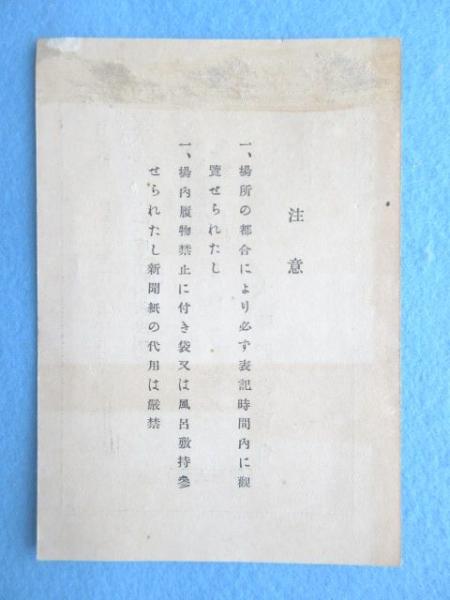 注意
一、場所の都合により必ず表記時間内に觀
覽せられたし
一、場內履物禁止に付き袋又は風呂敷持參
せられたし新聞紙の代用は嚴禁